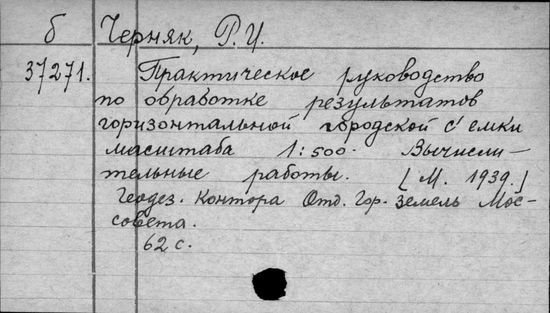 б Черняк, Р. И.
37271. Практическое руководство
по обработке результатов
горизонтальной городской с'емки
масштаба 1:500. Вычисли-
тельные работы. [М. 1939.]
Геодез. Контора Отд. Гор. земель Мос-
совета.
62 с.